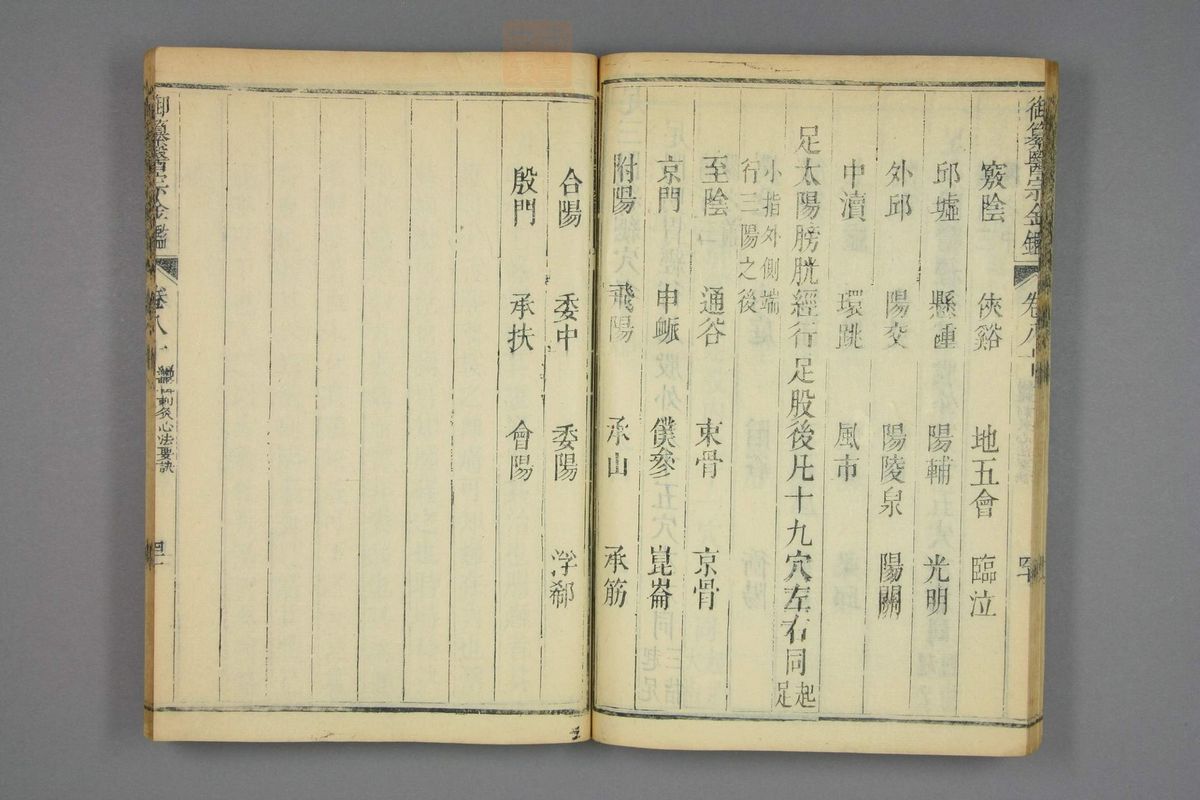 御纂醫宗金鑑
竅陰 俠谿 地五會 臨泣
邱墟 懸鍾 陽輔 光明
外邱 陽交 陽陵泉 陽關
中瀆 環跳 風市
足太陽膀胱經行足股後凡十九穴左右同起足
小指外側端
行三陽之後
至陰 通谷 束骨 京骨
京門 申脈 僕參 崑崙
附陽 飛陽 承山 承筋
合陽 委中 委陽 浮郄
殷門 承扶 會陽
御纂醫宗金鑑 卷八 刺灸心法要訣